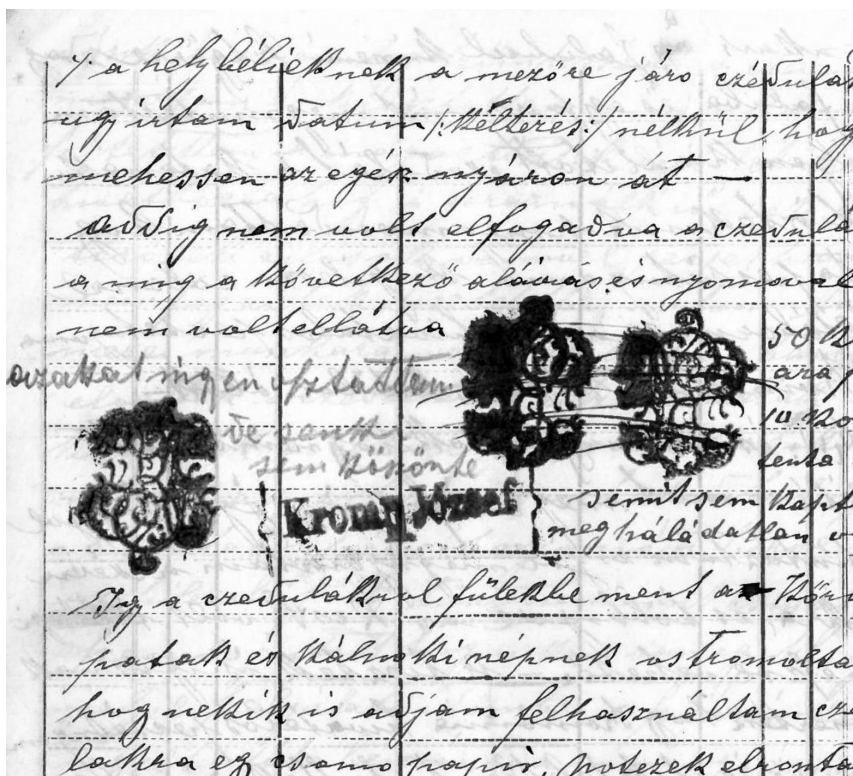 /. a helybélieknek a mezőre járo czédulat
ugy irtam datum /:Kéltezés:/ nélkül, hog
mehessen az egéz nyáron át —
addig nem volt elfogadva a czédulá
a mig a következő aláirás és nyomoval
nem volt ellátva
azakat ingyen osztattam
de senki
sem köszönte
50 K
ára
10 Ko
tenta
Kromp József
semit sem kapt
meg háládatlan v
Igy a czédulákrol fülekbe ment a Körö
patak és Kálnoki népnek ostromolta
hog nekik is adjam felhasználtam cze
lakra eg csomo papir, notezek elronta